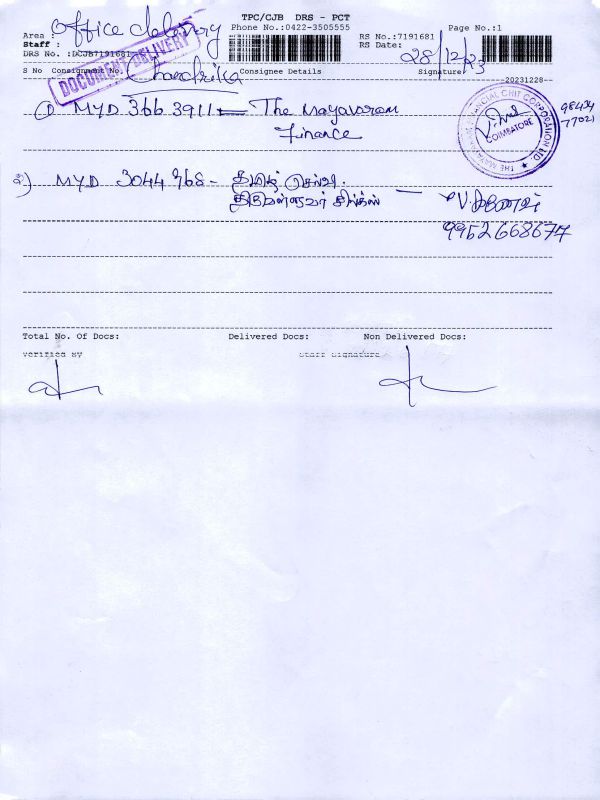 TPC/CJB DRS - PCT
Office delivery
Area :
Phone No.:0422-3505555
RS No.:7191681
Page No.:1
Staff :
RS Date:
28/12/23
DRS No. :DCJB7191681
DOCUMENT DELIVERY
S No Consignment No.
Chandrika
Consignee Details
Signature
20231228
① MYD 366 3911 - The Mayavaram
Finance
THE MAYAVARAM FINANCIAL CHIT CORPORATION LTD.
COIMBATORE
98434
77021
2) MYD 3044768 - தமிழ் செல்வி
திருவள்ளுவர் சில்க்ஸ்
9952668677
Total No. Of Docs:
Delivered Docs:
Non Delivered Docs:
Verified By
Staff Signature